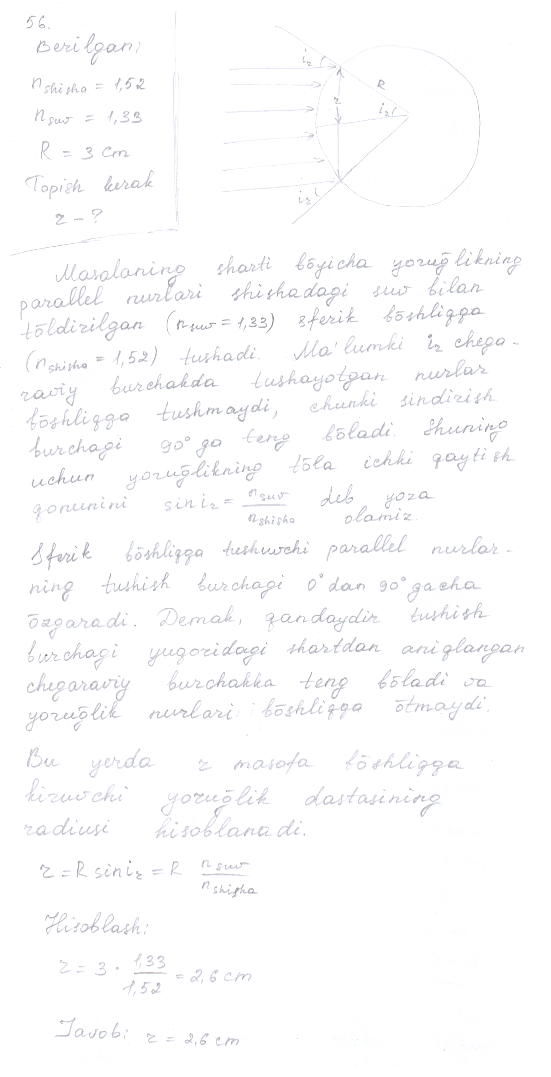 56.
Berilgan:
n shisha = 1,52
n suv = 1,33
R = 3 cm
Topish kerak
r - ?
i r
R
r
i r
i r
Masalaning sharti bōyicha yoruḡlikning
parallel nurlari shishadagi suv bilan
tōldirilgan (n suv = 1,33) sferik bōshliqqa
(n shisha = 1,52) tushadi. Ma'lumki i r chega-
raviy burchakda tushayotgan nurlar
bōshliqqa tushmaydi, chunki sindirish
burchagi 90° ga teng bōladi. Shuning
uchun yoruḡlikning tōla ichki qaytish
qonunini sin i r = n suv / n shisha deb yoza
olamiz.
Sferik bōshliqqa tushuvchi parallel nurlar-
ning tushish burchagi 0° dan 90° gacha
ōzgaradi. Demak, qandaydir tushish
burchagi yuqoridagi shartdan aniqlangan
chegaraviy burchakka teng bōladi va
yoruḡlik nurlari bōshliqqa ōtmaydi.
Bu yerda r masofa bōshliqqa
kiruvchi yoruḡlik dastasining
radiusi hisoblanadi.
r = R sin i r = R n suv / n shisha
Hisoblash:
r = 3 · 1,33 / 1,52 = 2,6 cm
Javob: r = 2,6 cm